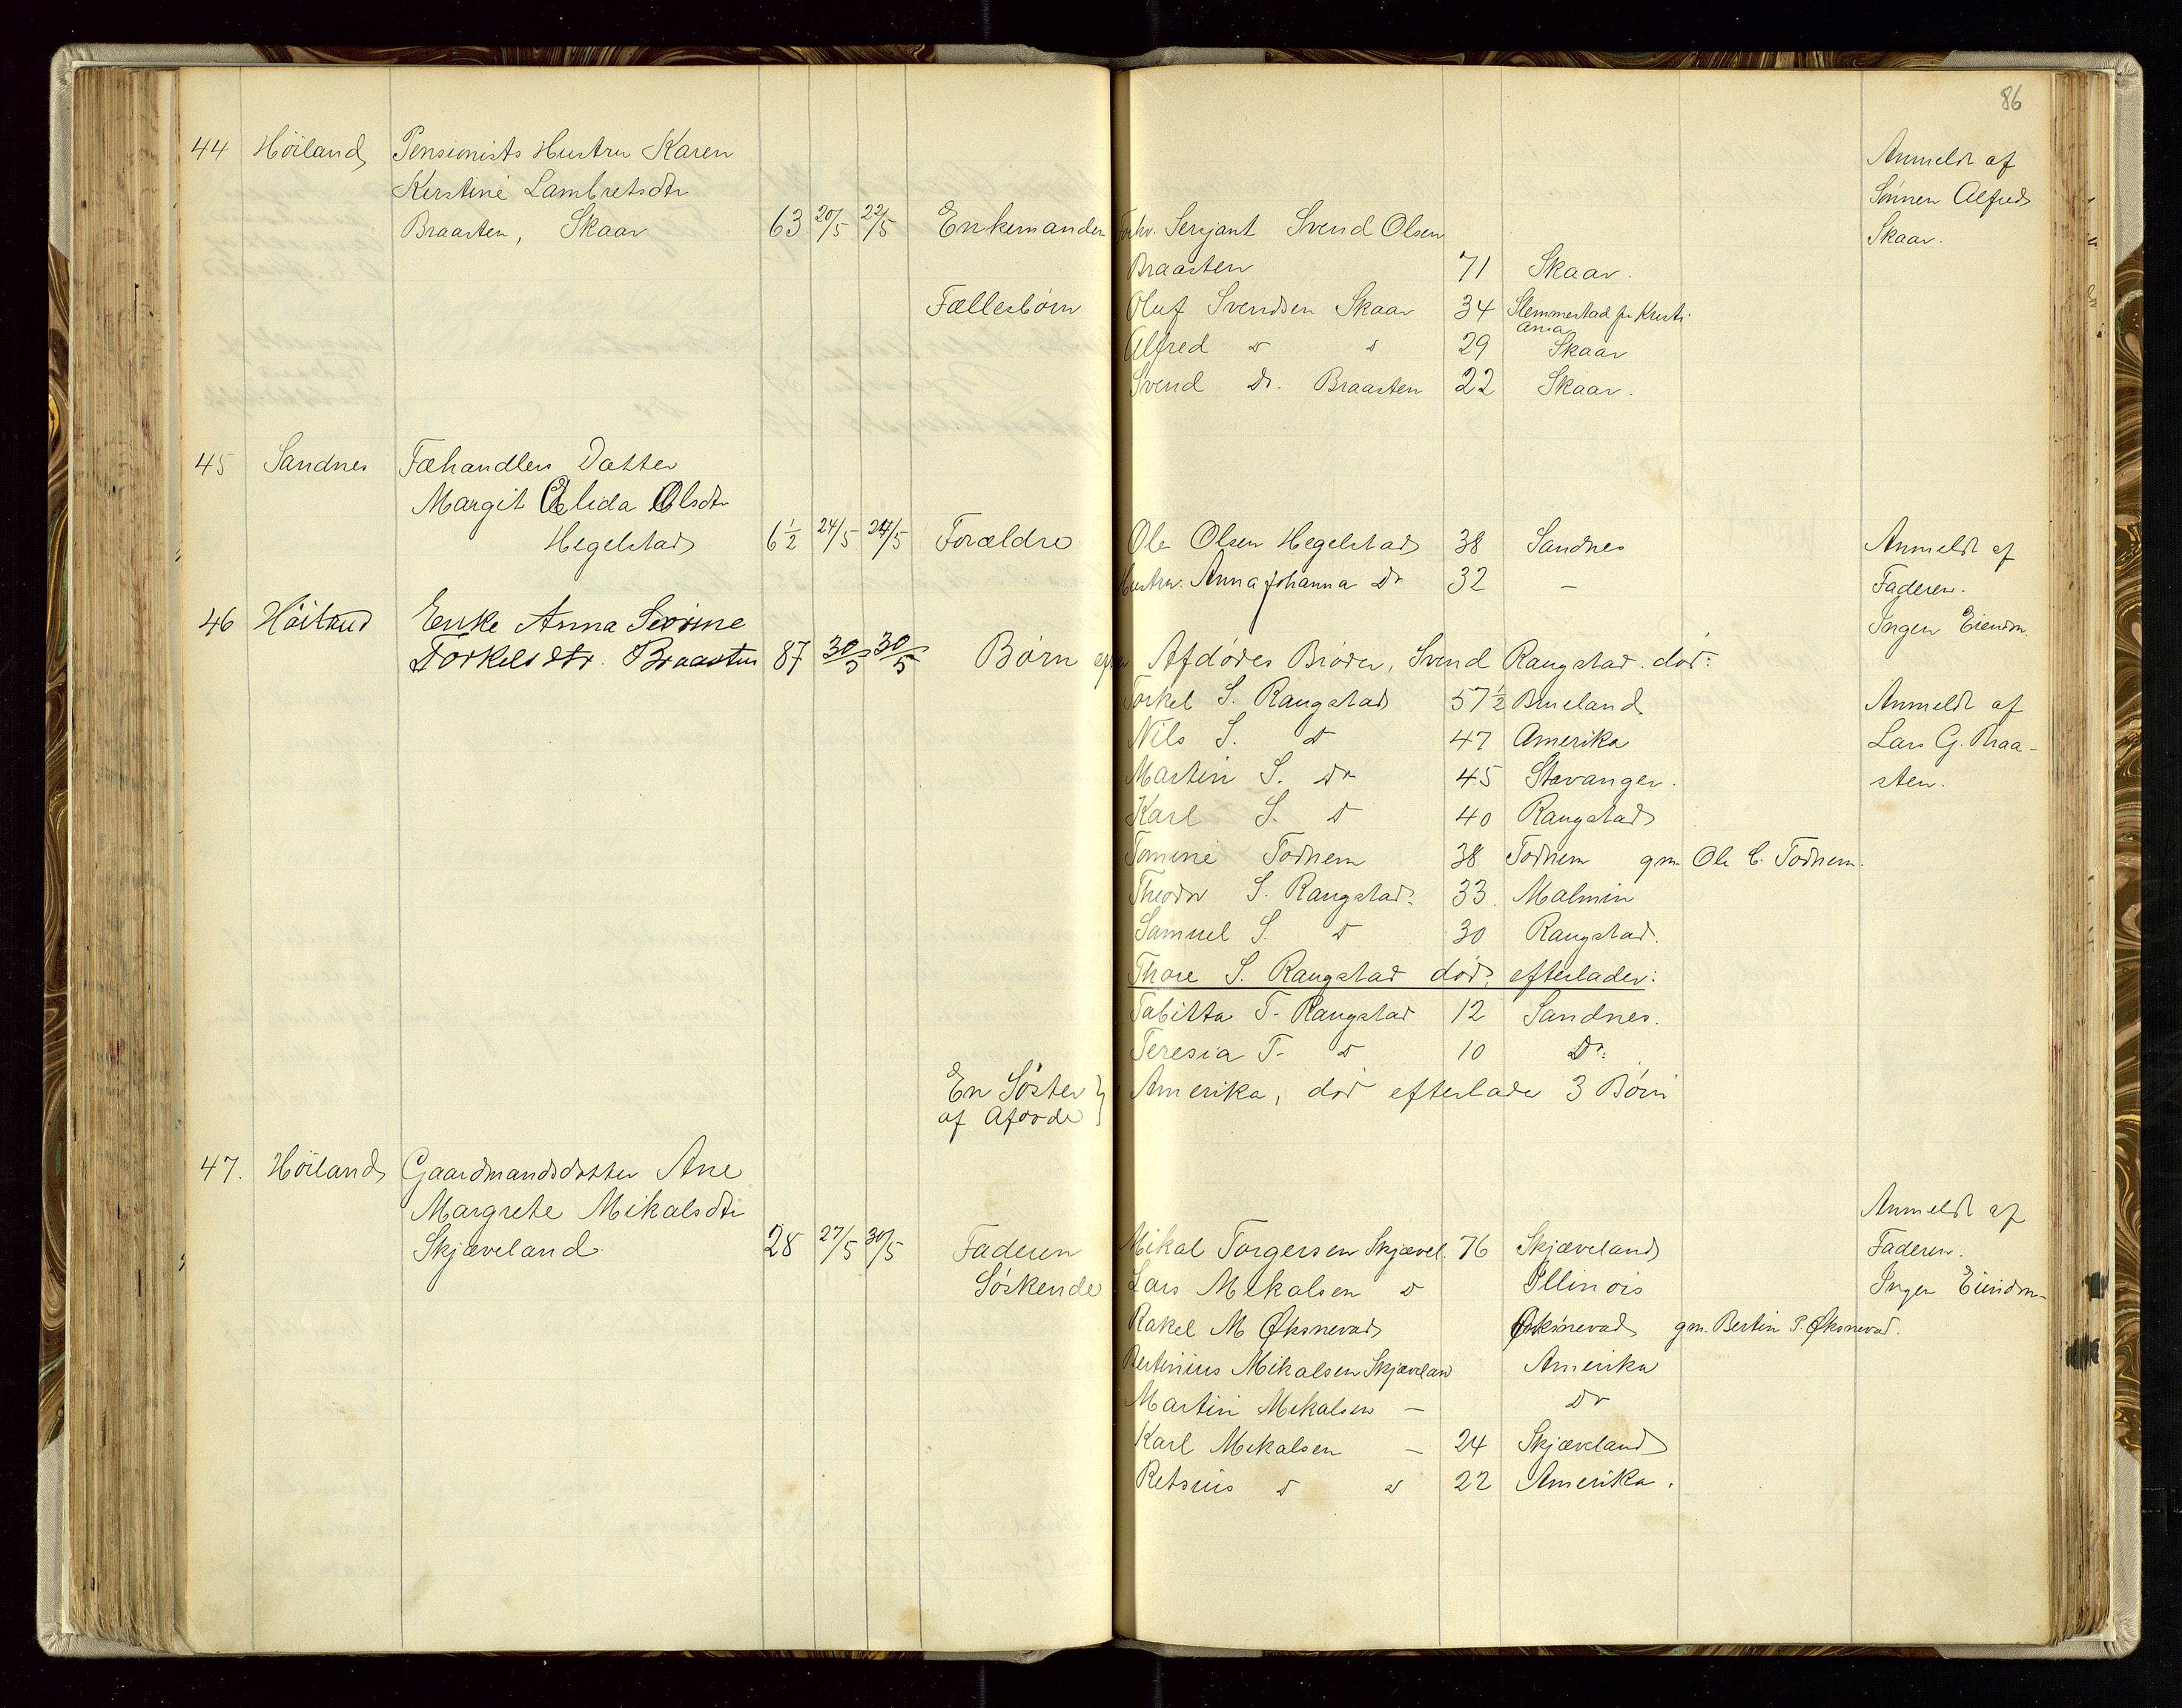 86
44 Höiland Pensionists Hustru Karen
Kirstine Lambretsdtr
Braasten, Skaar 63 20/5 22/5 Enkemanden Forhv. Serjant Svend Olsen
Braasten 71 Skaar.
Fællesbörn Oluf Svendsen Skaar 34 Slemmestad pr Kristi-
ania
Alfred d d 29 Skaar
Svend Do. Braasten 22 Skaar.
Anmeldt af
Sönnen Alfred
Skaar.
45 Sandnes Fæhandlers Datter
Margit Elida Olsdtr
Hegelstad 6½ 24/5 27/5 Forældre Ole Olsen Hegelstad 38 Sandnes
Hustru. Anna Johanna Do 32 —
Anmeldt af
Faderen.
Ingen Eiendm.
46 Höiland Enke Anna Serine
Torkelsdtr. Braasten 87 30/5 30/5 Börn efter Afdödes Broder, Svend Raugstad. död:
Torkel S. Raugstad 57½ Brueland
Nils S. d 47 Amerika
Martin S. Do 45 Stavanger.
Karl S. d 40 Raugstad
Tomine Todnem 38 Todnem gm Ole C. Todnem.
Theodor S. Raugstad. 33. Malmin
Samuel S. d 30 Raugstad.
Thore S. Raugstad död, efterlader:
Tabitta T. Raugstad 12 Sandnes.
Teresia T. d 10 Do.
En Söster } Amerika, död efterlade 3 Börn
af Afdöde
Anmeldt af
Lars G. Braa-
sten.
47. Höiland Gaardmandsdatter Ane
Margrete Mikalsdtr
Skjæveland 28 27/5 30/5 Faderen Mikal Torgersen Skjævel. 76 Skjæveland
Söskende Lars Mikalsen d Illinois
Rakel M Øksnevad Øksnevad gm. Bertin P. Øksnevad.
Bertinius Mikalsen Skjævelan Amerika
Martin Mikalsen — Do
Karl Mikalsen — 24 Skjæveland
Retsius d d 22 Amerika.
Anmeldt af
Faderen.
Ingen Eiendm-